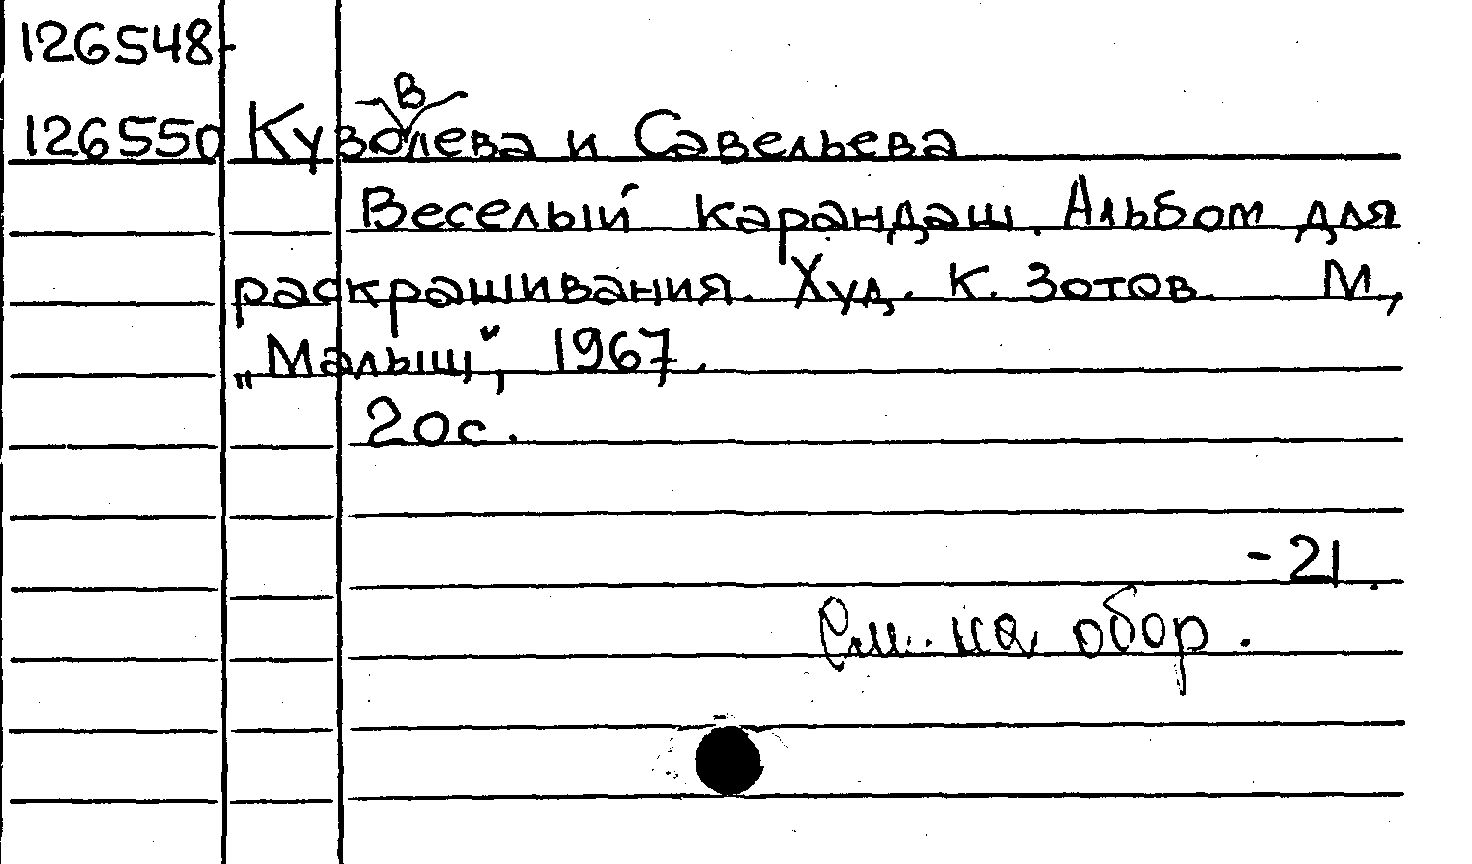 126548-
126550 Кузовлева и Савельева
Веселый карандаш. Альбом для
раскрашивания. Худ. К. Зотов. М,
„Малыш", 1967.
20с.
-21.
См. на обор.